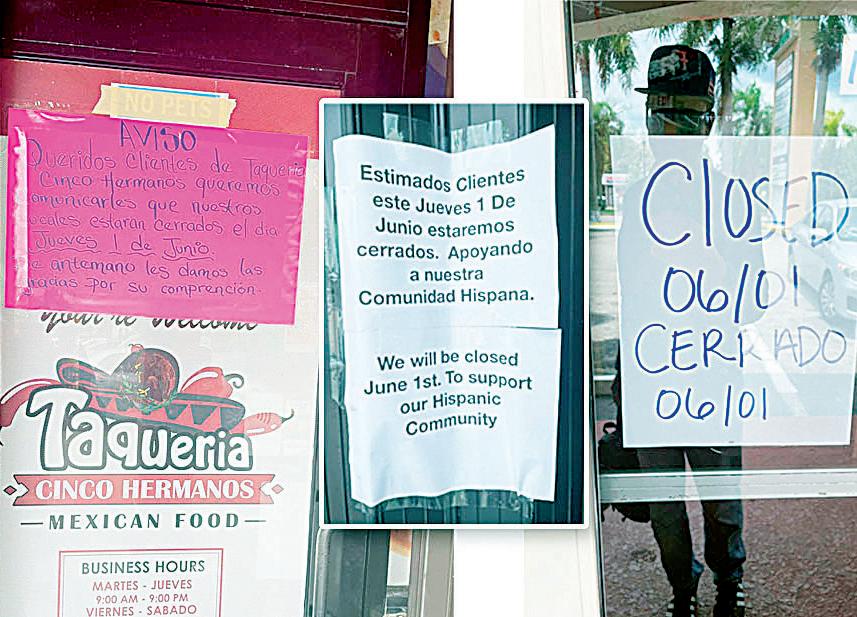 NO PETS
AVISO
Queridos Clientes de Taqueria
Cinco Hermanos queremos
omunicarles que nuestros
ocales estaran cerrados el dia
Jueves 1 de Junio.
e antemano les damos las
por su comprención.
You're Welcome
Taqueria
CINCO HERMANOS
MEXICAN FOOD
BUSINESS HOURS
MARTES - JUEVES
9:00 AM - 9:00 PM
VIERNES - SABADO
Estimados Clientes
este Jueves 1 De
Junio estaremos
cerrados. Apoyando
a nuestra
Comunidad Hispana.
We will be closed
June 1st. To support
our Hispanic
Community
CLOSED
06/01
CERRADO
06/01